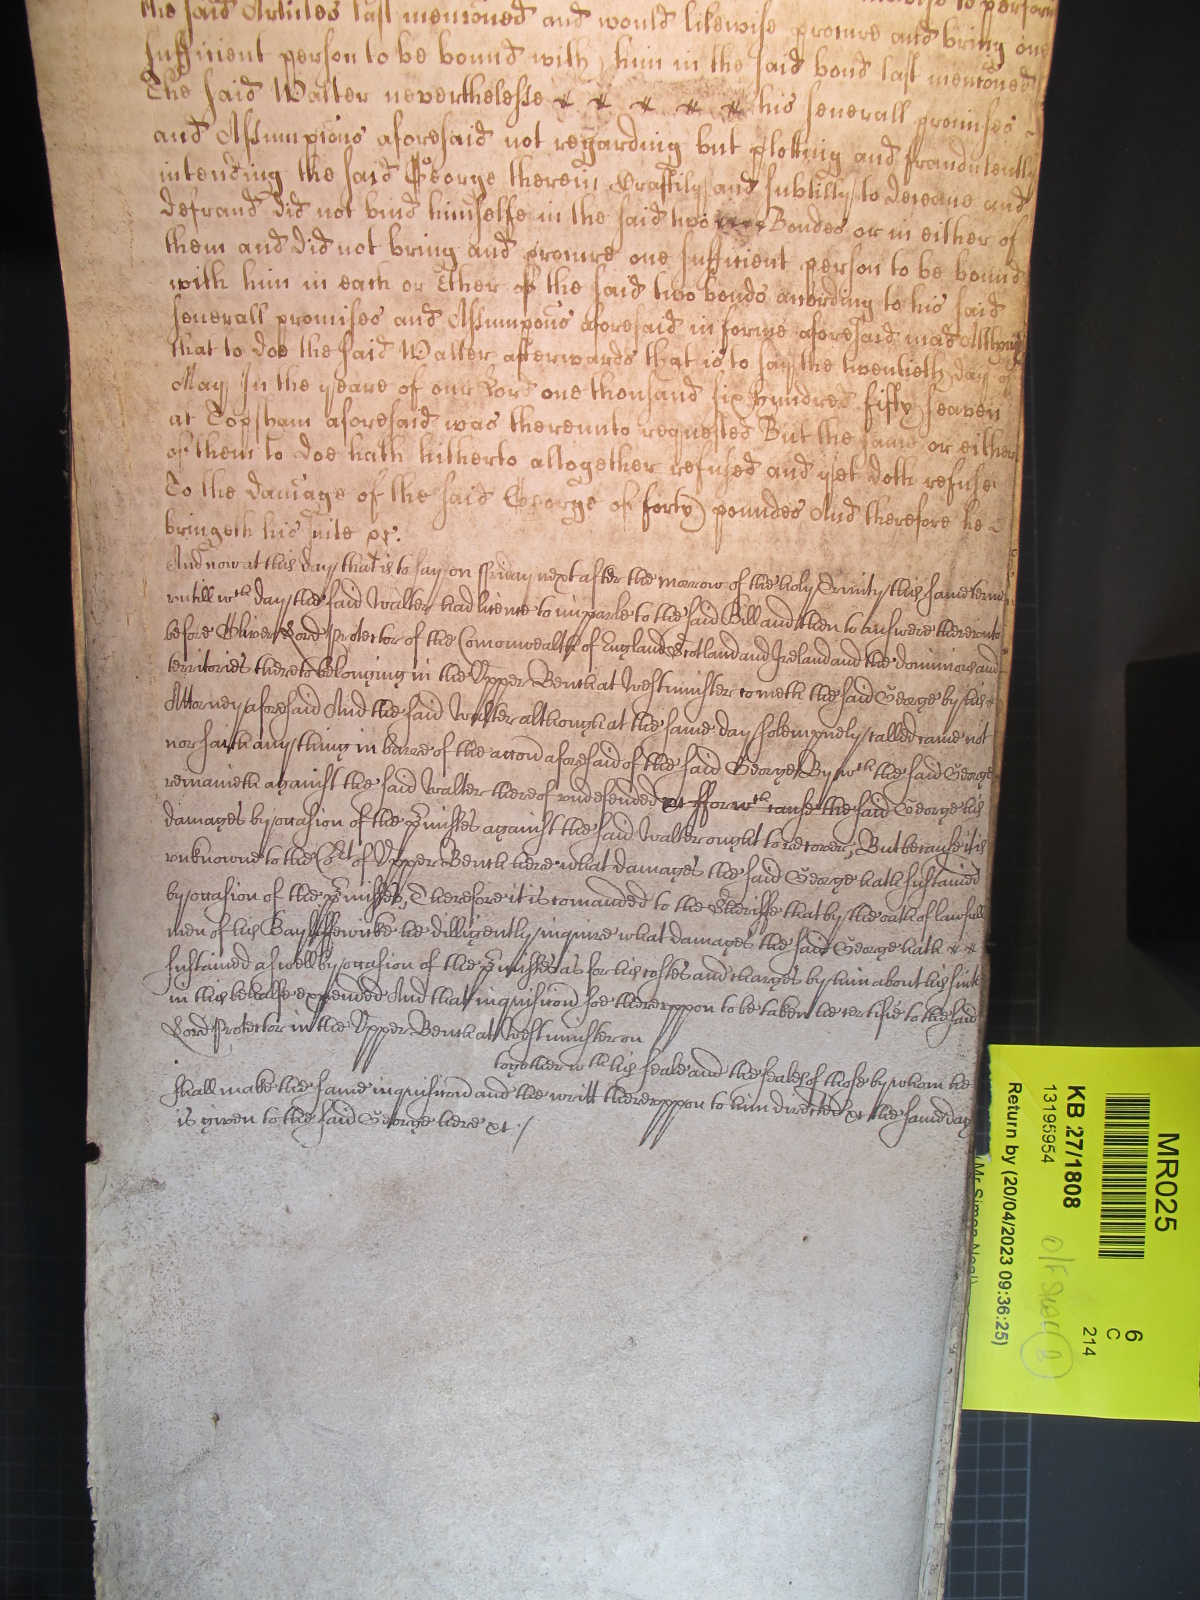 the said Articles last mentioned and would likewise procure and bring one
sufficient person to be bound with him in the said bond last mentoned
The said Walter neverthelesse his severall promises
and Assumpcons aforesaid not regarding but plotting and fraudulently
intending the said George therein Craftily and subtilly to deceave and
defraud did not bind himselfe in the said two Bondes or in either of
them and did not bring and procure one sufficient person to be bound
with him in each or Ether of the said two bonds according to his said
severall promises and Assumpcons aforesaid in forme aforesaid made Although
that to doe the said Walter afterwards that is to say the twentieth day of
May In the yeare of our Lord one thousand six hundred fifty seaven
at Topsham aforesaid was thereunto requested But the same or either
of them to doe hath hitherto altogether refused and yet doth refuse
To the damage of the said George of forty poundes And therefore he
bringeth his suite &c.
And now at this day that is to say on ffriday next after the morrow of the holy Trinity this same terme
untill wch day the said Walter had licence to imparle to the said Bill and then to answere thereunto
before Oliver Lord Protector of the Comonwealth of England Scotland and Ireland and the dominions and
territories thereto belonging in the Upper Bench at Westminster cometh the said George by his
Attorney aforesaid And the said Walter although at the same day solempnely called came not
nor saith any thing in barre of the accon aforesaid of the said George By wch the said George
remaineth against the said Walter thereof undefended &c ffor wch cause the said George his
damages by occasion of the pmisses against the said Walter ought to recover; But because it is
unknowne to the Cort of Upper Bench here what damages the said George hath sustained
by occasion of the pmisses, Therefore it is comanded to the Sheriffe that by the oath of lawfull
men of his Bayliffewicke he dilligently inquire what damages the said George hath
sustained aswell by occasion of the pmisses as for his costes and charges by him about his suite
in this behalfe expended And that inquisicon soe thereuppon to be taken he certifie to the said
Lord Protector in the Upper Bench at Westminster on
together wth his seale and the seales of those by whom he
shall make the same inquisicon and the writt thereuppon to him directed &c the same day
is given to the said George here &c ./
MR025
KB 27/1808
13195954
Return by (20/04/2023 09:36:25)
6
C
214